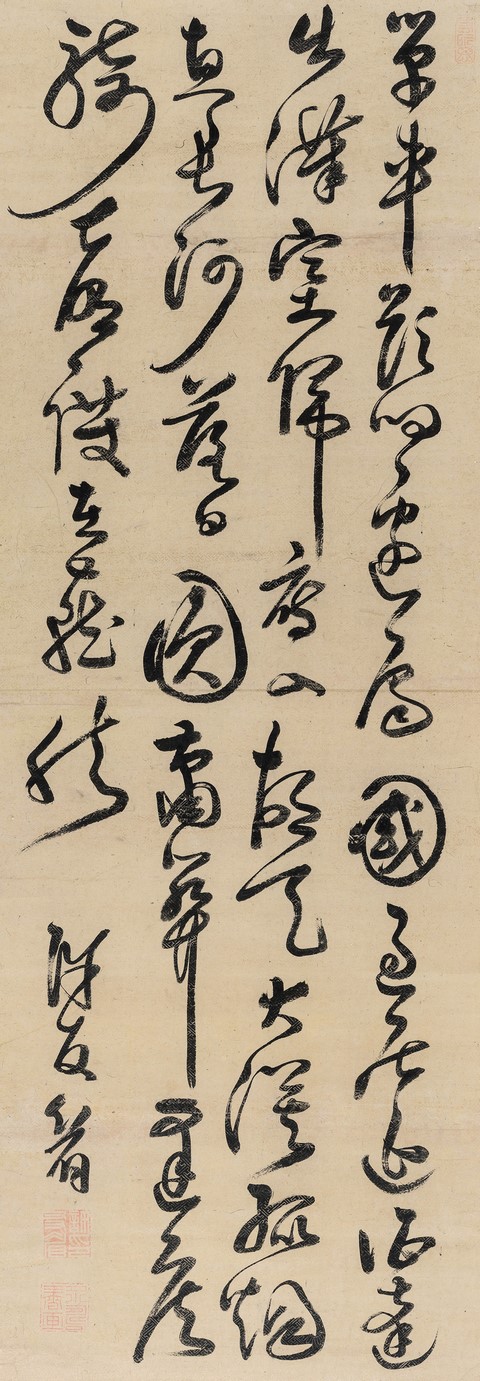 單車欲問邊屬國過居延征蓬
出漢塞歸雁入胡天大漠孤煙
直長河落日圓蕭關逢候
騎都護在燕然